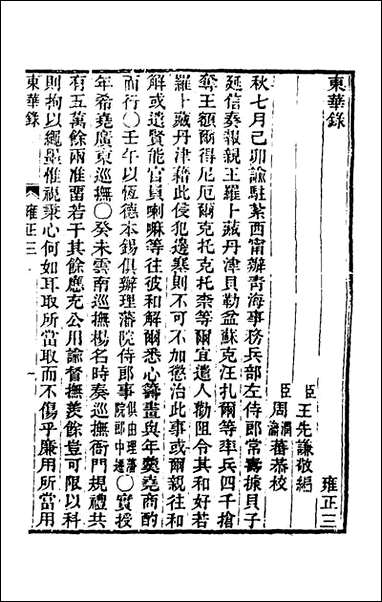 東華錄
雍正三
臣王先謙敬編
臣周潤蕃周瀹蕃恭校
秋七月己卯諭駐紥西甯辦青海事務兵部左侍郎常壽據貝子
延信奏報親王羅卜藏丹津貝勒盆蘇克汪扎爾等率兵四千搶
奪王額爾得尼厄爾克托克托柰等爾宜遣人勸阻令其和好若
羅卜藏丹津藉此侵犯邊塞則不可不加懲治此事或爾親往和
解或遣賢能官員喇嘛等往彼和解爾悉心籌畫與年羹堯商酌
而行〇壬午以恆德本錫俱辦理藩院侍郎事俱由理藩院郎中遷〇實授
年希堯廣東巡撫〇癸未雲南巡撫楊名時奏巡撫衙門規禮共
有五萬餘兩准畱若干其餘應充公用諭督撫羨餘豈可限以科
則拘以繩墨惟視秉心何如耳取所當取而不傷乎廉用所當用
東華錄
雍正三
一